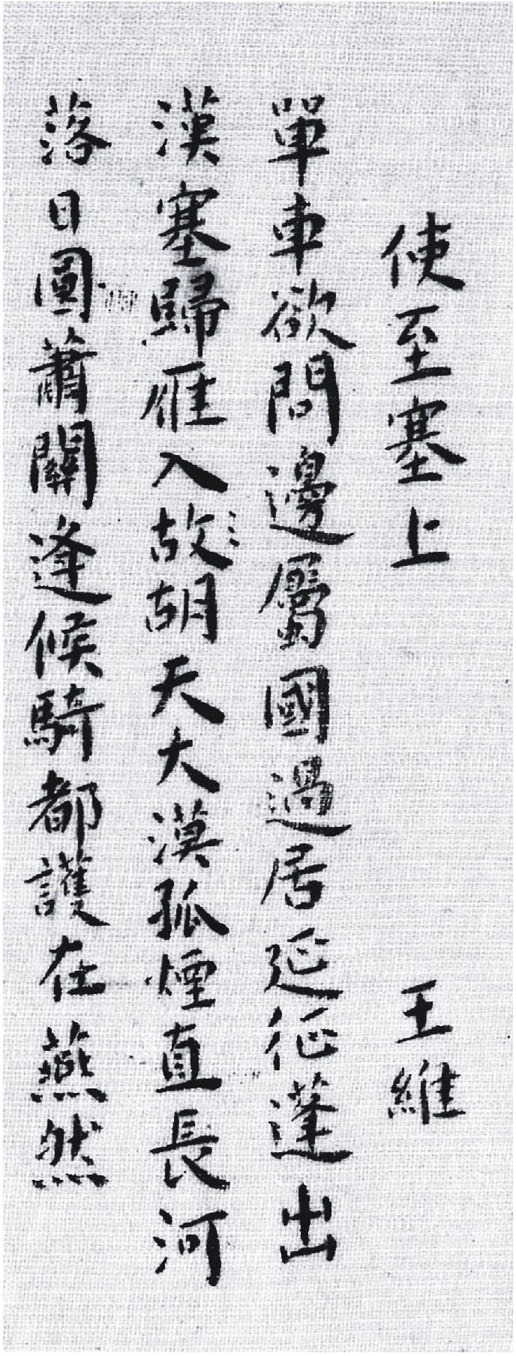 使至塞上 王維
單車欲問邊屬國過居延征蓬出
漢塞歸雁入故胡天大漠孤煙直長河
落日圓蕭關逢候騎都護在燕然